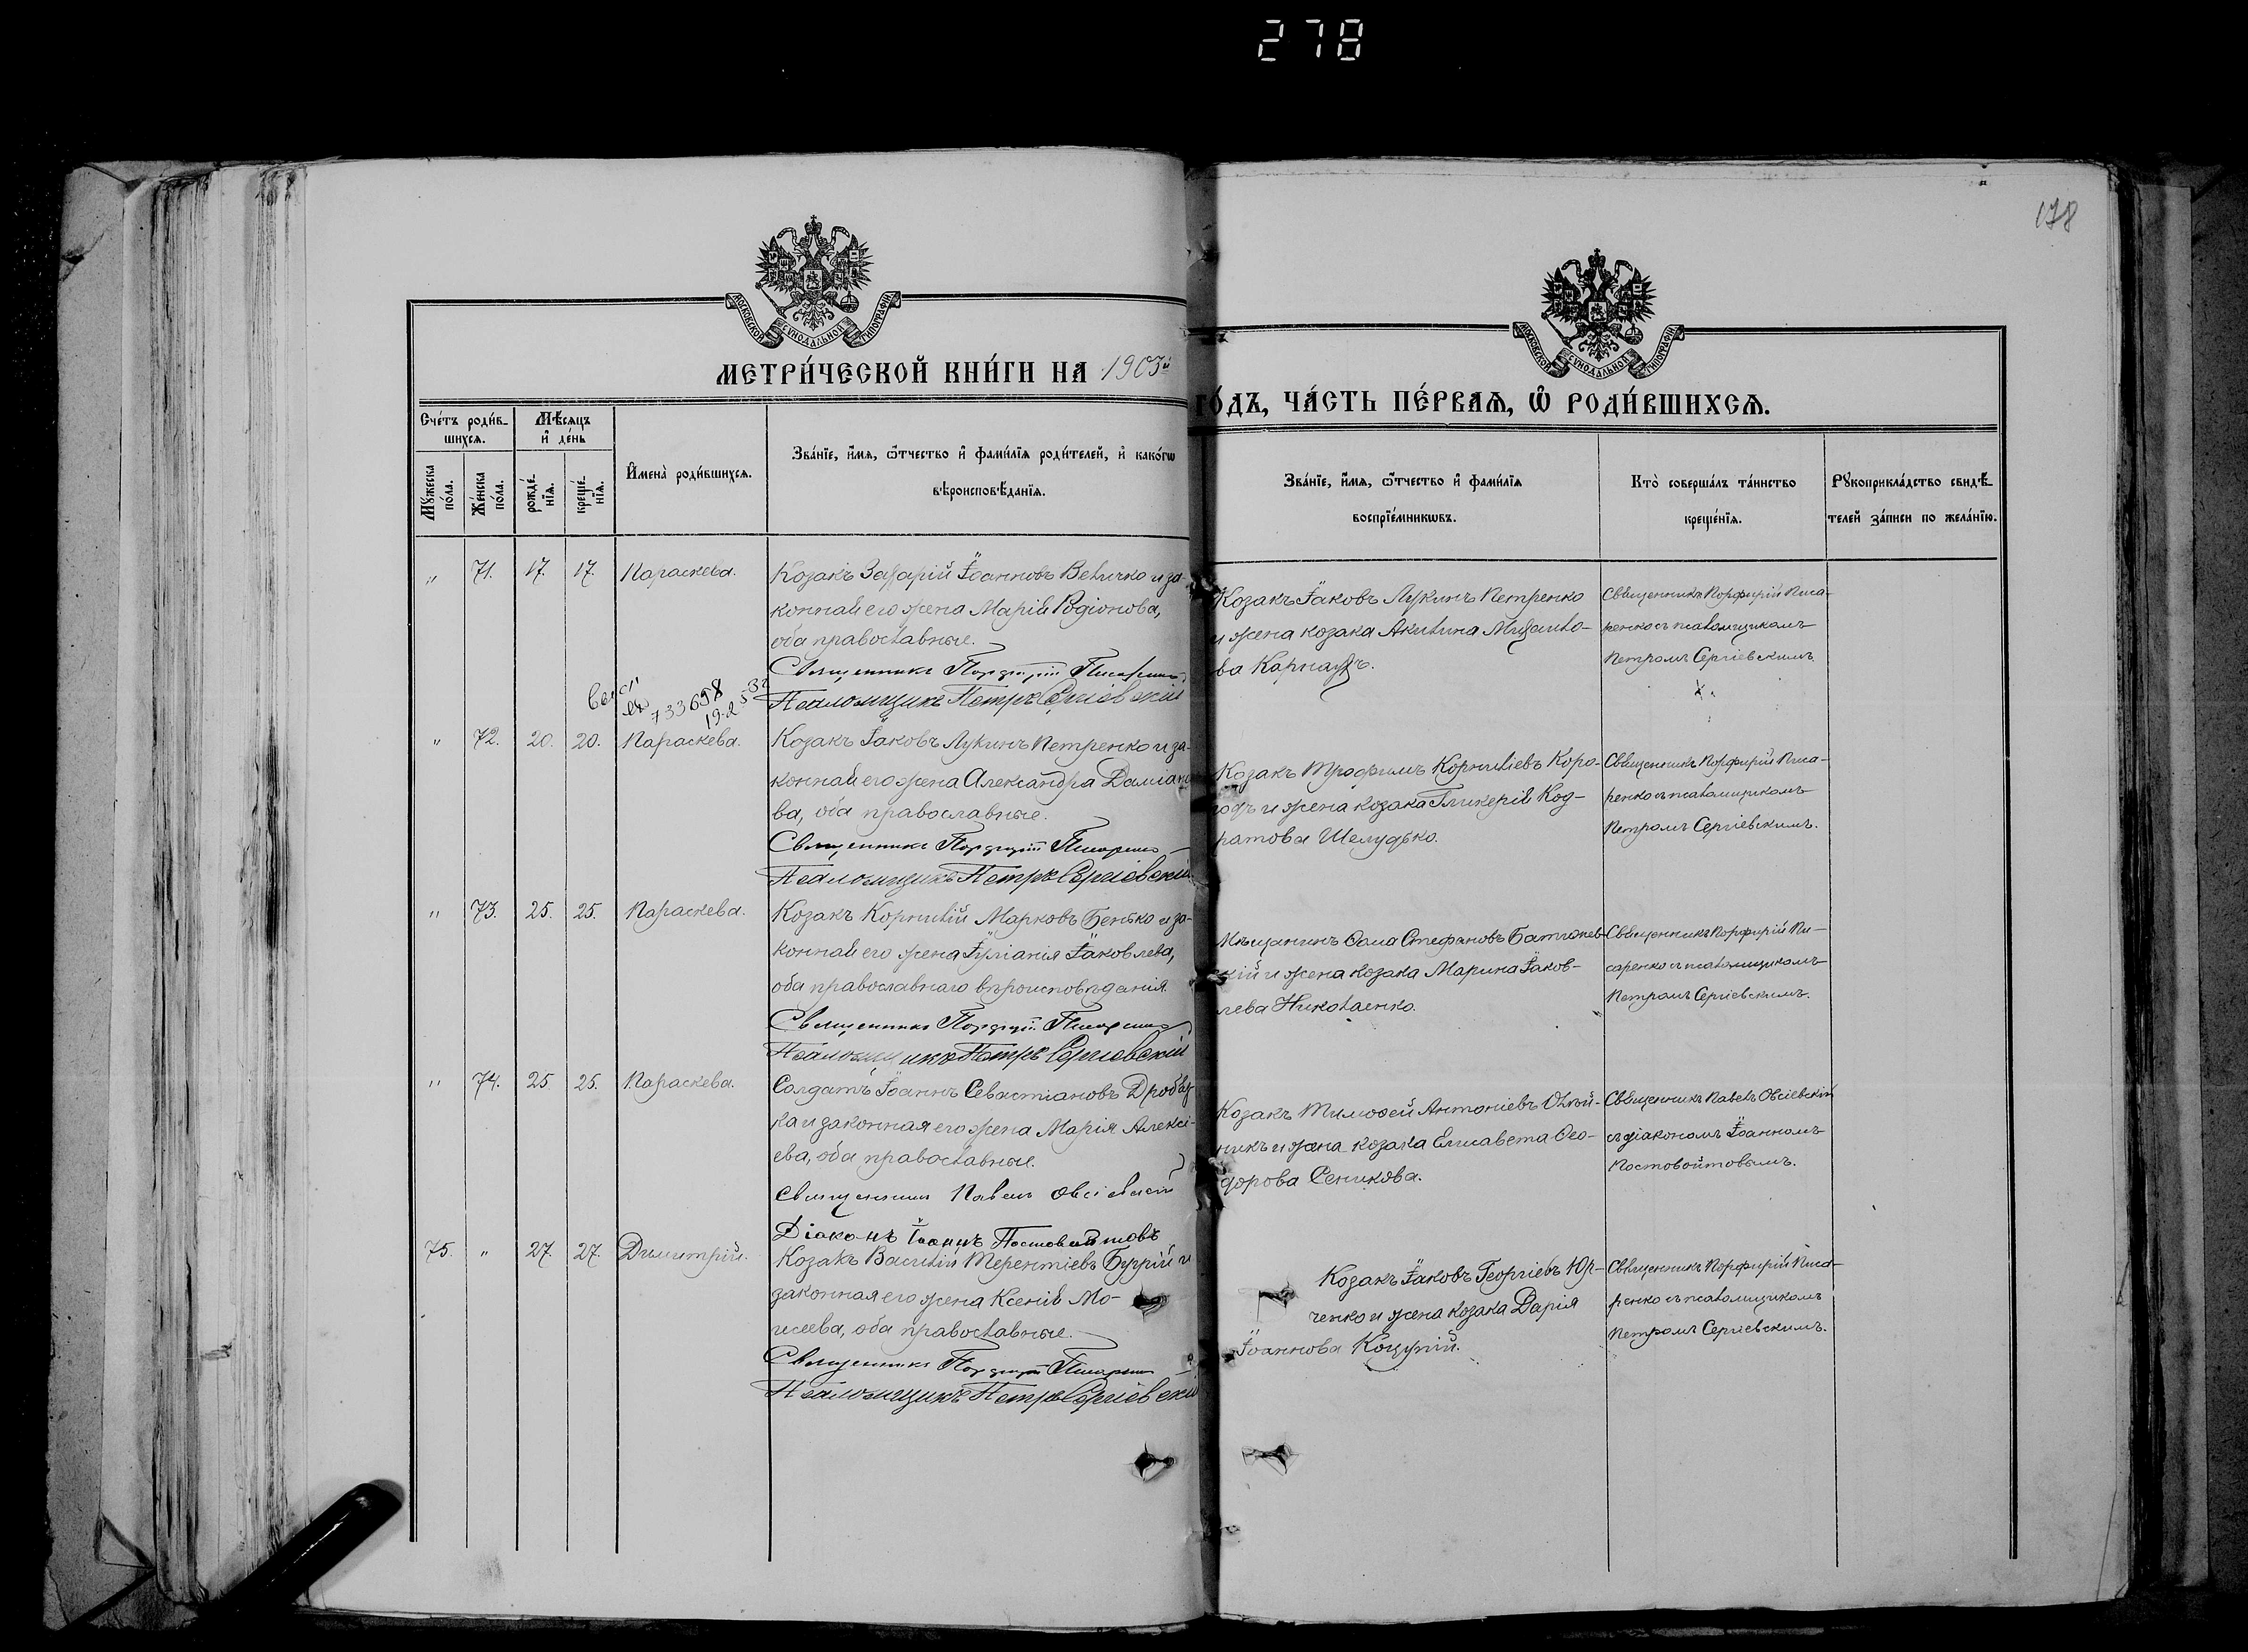 278
178
МОСКОВСКОЙ СѴНОДАЛЬНОЙ ТИПОГРАФІИ
МЕТРИ́ЧЕСКОЙ КНИ́ГИ НА 1903й
МОСКОВСКОЙ СѴНОДАЛЬНОЙ ТИПОГРАФІИ
ГО́ДЪ, ЧА́СТЬ ПЕ́РВАѦ, Ѡ РОДИ́ВШИХСѦ.
Сче́тъ роди́в-
шихсѧ.
Мѣ́сѧцъ
и҆ де́нь
Мꙋ́жеска
по́ла.
Же́нска
по́ла.
рожде́-
нїѧ.
креще́-
нїѧ.
И҆мена̀ роди́вшихсѧ.
Зва́нїе, и҆́мѧ, ѻ҆́тчество и҆ фами́лїѧ роди́телей, и҆ како́гѡ
вѣроисповѣ́данїѧ.
Зва́нїе, и҆́мѧ, ѻ҆́тчество и҆ фами́лїѧ
воспрїе́мникѡвъ.
Кто̀ соверша́лъ та́инство
креще́нїѧ.
Рꙋкоприкла́дство свидѣ́-
телей за́писи по жела́нїю.
„ 71. 17. 17. Параскева.
Козакъ Захарій Іоанновъ Величко и за-
конная его жена Марія Родіонова,
оба православные.
Священникъ Порфирій Писаренко
Псаломщикъ Петръ Сергіевскій
Козакъ Іаковъ Лукинъ Петренко
и жена козака Акилина Михаило-
ва Карнаухъ.
Священникъ Порфирій Писа-
ренко съ псаломщикомъ
Петромъ Сергіевскимъ.
733698
„ 72. 20. 20. Параскева.
Козакъ Іаковъ Лукинъ Петренко и за-
конная его жена Александра Даміано-
ва, оба православные.
Священникъ Порфирій Писаренко
Псаломщикъ Петръ Сергіевскій
Козакъ Трофимъ Корниліевъ Коро-
одъ и жена козака Гликерія Код-
ратова Шелудько.
Священникъ Порфирій Писа-
ренко съ псаломщикомъ
Петромъ Сергіевскимъ.
„ 73. 25. 25. Параскева.
Козакъ Корнилій Марковъ Бенько и за-
конная его жена Іуліанія Іаковлева,
оба православнаго вѣроисповѣданія.
Священникъ Порфирій Писаренко
Псаломщикъ Петръ Сергіевскій
Мѣщанинъ Ѳома Стефановъ
скій и жена козака Марина Іаков-
лева Николаенко.
Священникъ Порфирій Пи-
саренко съ псаломщикомъ
Петромъ Сергіевскимъ.
„ 74. 25. 25. Параскева.
Солдатъ Іоаннъ Севастіановъ Дробяз-
ка и законная его жена Марія Алексі-
ева, оба православные.
Священникъ Павелъ Овсіевскій
Діаконъ Іоаннъ Постовойтовъ
Козакъ Тимоѳей Антоніевъ Олій-
никъ и жена козака Елисавета Ѳео-
дорова Сеникова.
Священникъ Павелъ Овсіевскій
съ діакономъ Іоанномъ
Постовойтовымъ.
75. „ 27. 27. Димитрій.
Козакъ Василій Терентіевъ Буррій и
законная его жена Ксенія Мо-
исеева, оба православные.
Священникъ Порфирій Писаренко
Псаломщикъ Петръ Сергіевскій
Козакъ Іаковъ Георгіевъ Юр-
ченко и жена козака Дарія
Іоаннова Коцупій.
Священникъ Порфирій Писа-
ренко съ псаломщикомъ
Петромъ Сергіевскимъ.